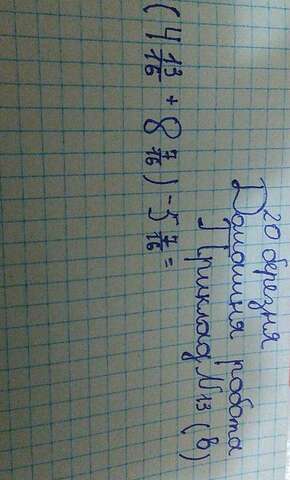 20 березня
Домашня робота
Приклад N13 (в)
(4 13/16 + 8 7/16) - 5 7/16 =